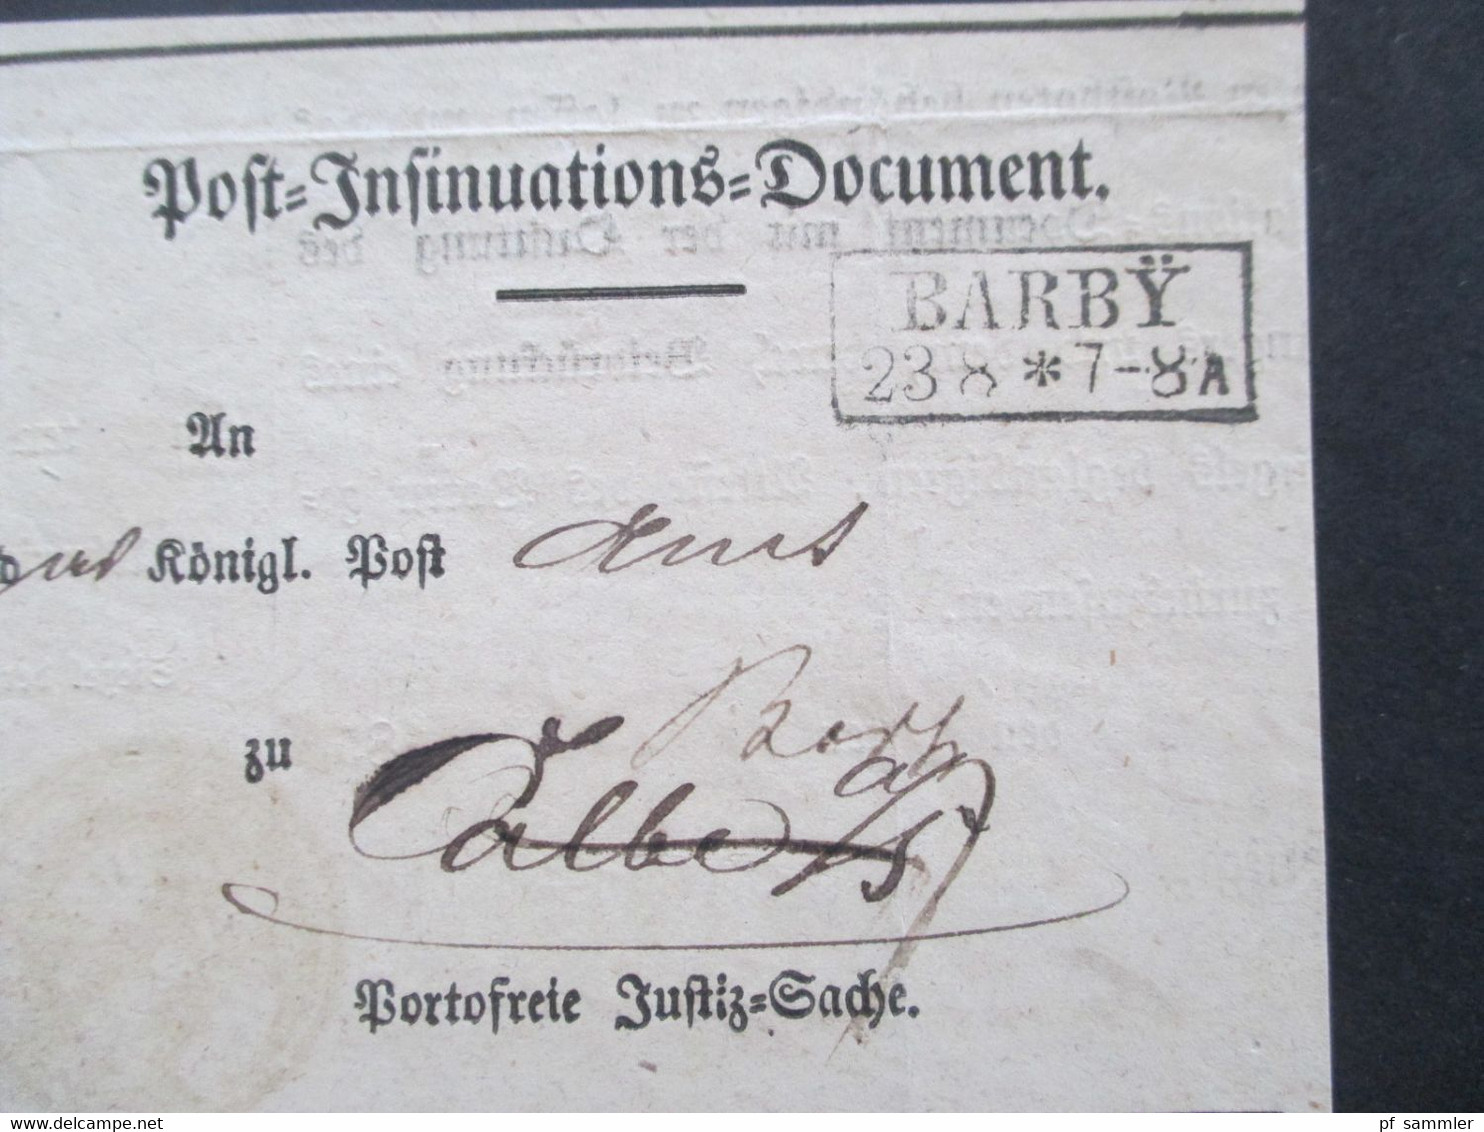 Post-Insinuations-Document.
BARBŸ
23 8 * 7-8 A
An
das Königl. Post Amt
Barby
zu Calbe a/S
Portofreie Justiz-Sache.
delcampe.net
pf_sammler